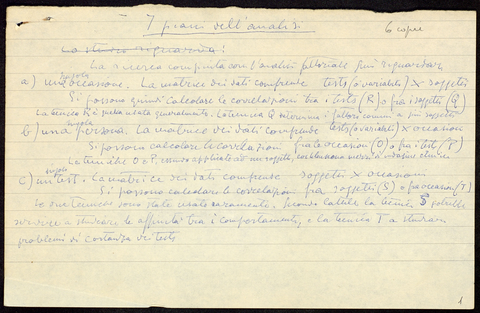 I piani dell'analisi
6 copie
Lo studio riguarda :
La ricerca compiuta con l'analisi fattoriale può riguardare
a) una singola occasione. La matrice dei dati comprende tests (o variabili) X soggetti
Si possono quindi calcolare le correlazioni tra i tests (R) o fra i soggetti (Q)
La tecnica R è quella usata comunemente. La tecnica Q determina i fattori comuni a più soggetti
b) una singola persona. La matrice dei dati comprende tests (o variabili) X occasioni
Si possono calcolare le correlazioni fra le occasioni (O) o fra i test (P)
Le tecniche O e P, essendo applicabili ad un soggetto, costituiscono mezzi di indagine clinica
c) un singolo test. La matrice dei dati comprende soggetti X occasioni
Si possono calcolare le correlazioni fra soggetti (S) o fra occasioni (T)
Le due tecniche sono state usate raramente. Secondo Cattell la tecnica S potrebbe
servire a studiare le affinità tra i comportamenti, e la tecnica T a studiare
problemi di costanza dei tests
1